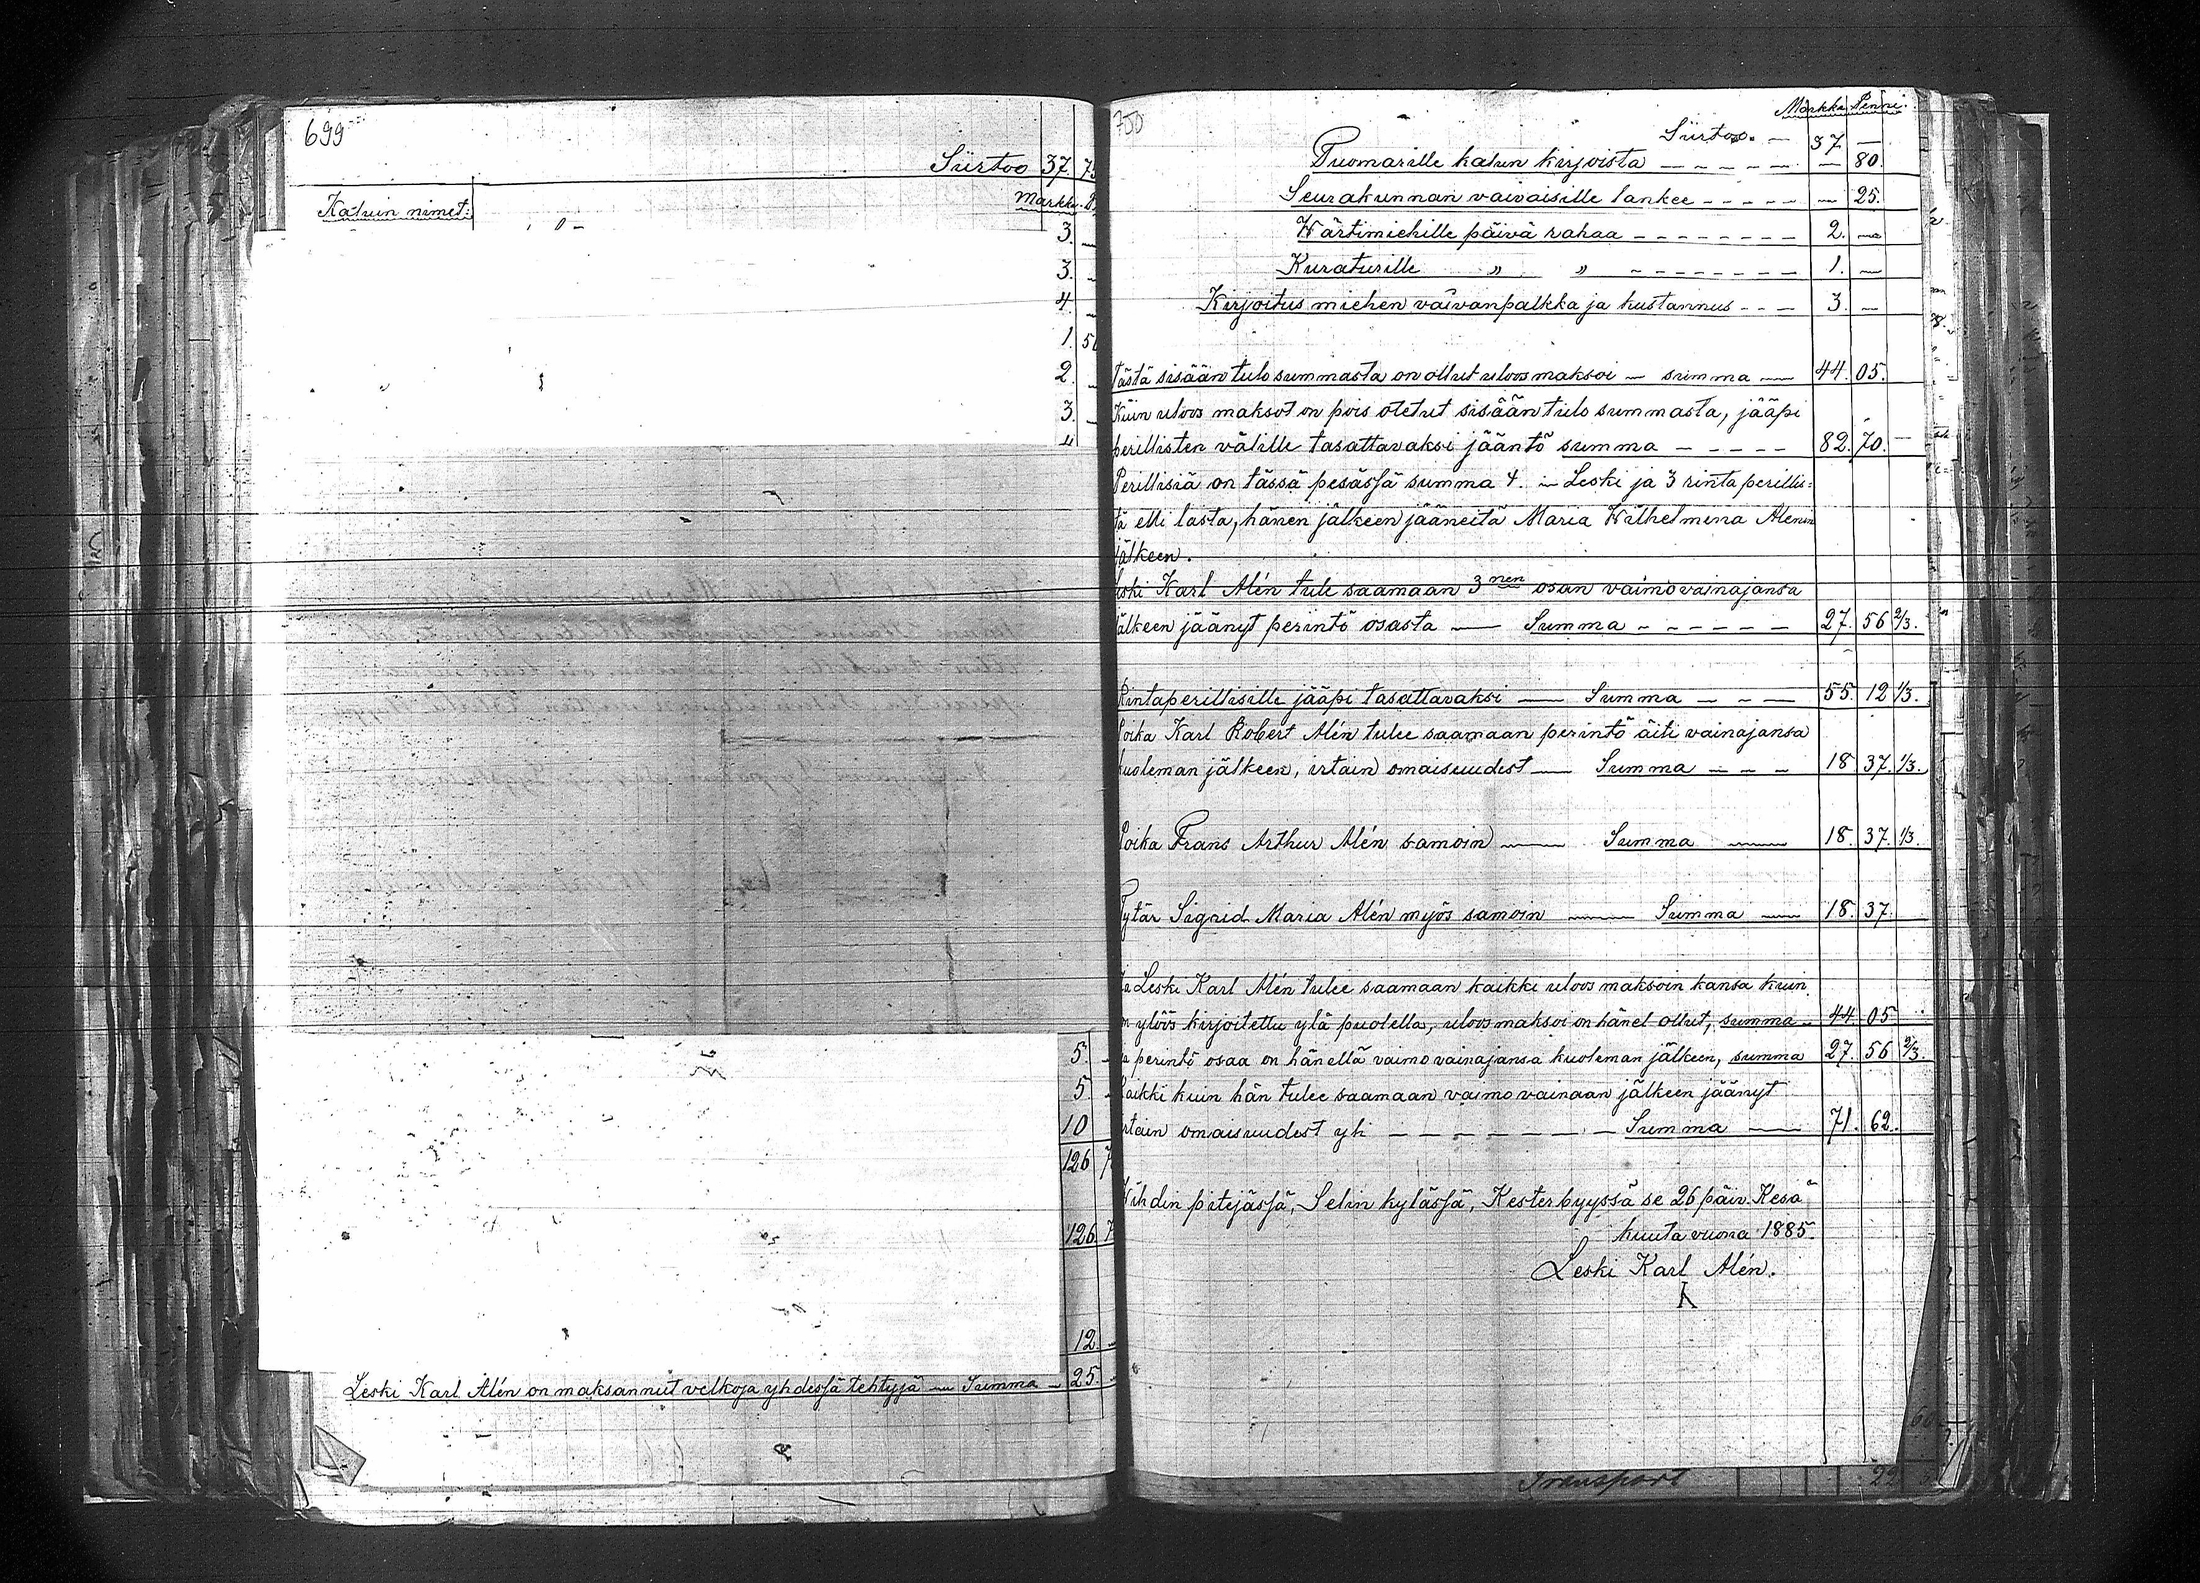 699
Siirtoo 37. 75
Kaluin nimet:
Markka.
3. —
3. —
4 —
1. 50
2. —
3. —
4
5. —
5 —
10
126 7
126. 7
12. —
Leski Karl Alén on maksannut velkoja yhdessä tehtyjä — Summa — 25.
750
Markka Penni.
Siirtoo. — 37. —
Tuomarille kalun kirjoista — — — — — — 80.
Seurakunnan vaivaisille lankee — — — — — — 25.
Wärtimiehille päivä rahaa — — — — — — 2. —
Kuraturille " " — — — — — — 1. —
Kirjoitus miehen vaivanpalkka ja kustannus — — — 3. —
Tästä sisään tulo summasta on ollut uloos maksoi — summa — 44. 05.
Kuin uloos maksot on pois otetut sisään tulo summasta, jääpi
perillisten välille tasattavaksi jääntö summa — — — — 82. 70. —
Perillisiä on tässä pesässä summa 4. — Leski ja 3 rinta perillis=
tä elli lasta, hänen jälkeen jääneitä Maria Wilhelmina Alenin
jälkeen.
Leski Karl Alén tule saamaan 3 nen osan vaimovainajansa
jälkeen jäänyt perintö osasta — Summa — — — — — 27. 56 2/3.
Rintaperillisille jääpi tasattavaksi — Summa — — — 55. 12 1/3.
Poika Karl Robert Alén tulee saamaan perintö äiti vainajansa
kuoleman jälkeen, irtain omaisuudest — Summa — — — 18 37. 1/3.
Poika Frans Arthur Alén samoin — Summa — 18. 37. 1/3.
Tytär Sigrid Maria Alén myös samoin — Summa — 18. 37.
Ja Leski Karl Alén tulee saamaan kaikki uloos maksoin kansa kuin
on ylöös kirjoitettu ylä puolella, uloos maksoi on hänel ollut, summa — 44. 05
ja perintö osaa on hänellä vaimo vainajansa kuoleman jälkeen, summa 27. 56 2/3.
Kaikki kuin hän tulee saamaan vaimo vainaan jälkeen jäänyt
irtain omaisuudest yli — — — — — — — Summa — 71. 62.
Wihdin pitejässä, Selin kylässä, Kesterbyyssä se 26 päiv. Kesä
kuuta vuona 1885.
Leski Karl Alén.
Transport